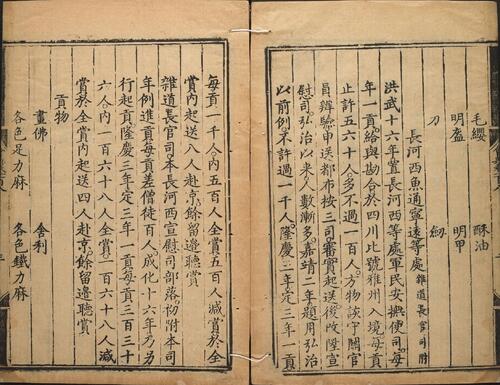 毛纓　酥油
明盔　明甲
刀　劒
長河西魚通寧遠等處雜道長官司附
洪武十六年置長河西等處軍民安撫使司每
年一貢給與勘合於四川比號雅州入境每貢
止許五六十人多不過一百人方物該守關官
員辦驗申送都布按三司審實起送後改陞宣
慰司弘治以來人數漸多嘉靖二年題用弘治
以前例不許過一千人隆慶三年定三年一貢
每貢一千人內五百人全賞五百人減賞於全
賞內起送八人赴京餘留邊聽賞
雜道長官司本長河西宣慰司部落初附本司
年例進貢每貢差僧徒百人成化十六年乃另
行起貢隆慶三年定三年一貢每貢三百三十
六人內一百六十八人全賞一百六十八人減
賞於全賞內起送四人赴京餘留邊聽賞
貢物
畫佛　舍利
各色足力麻　各色鐵力麻